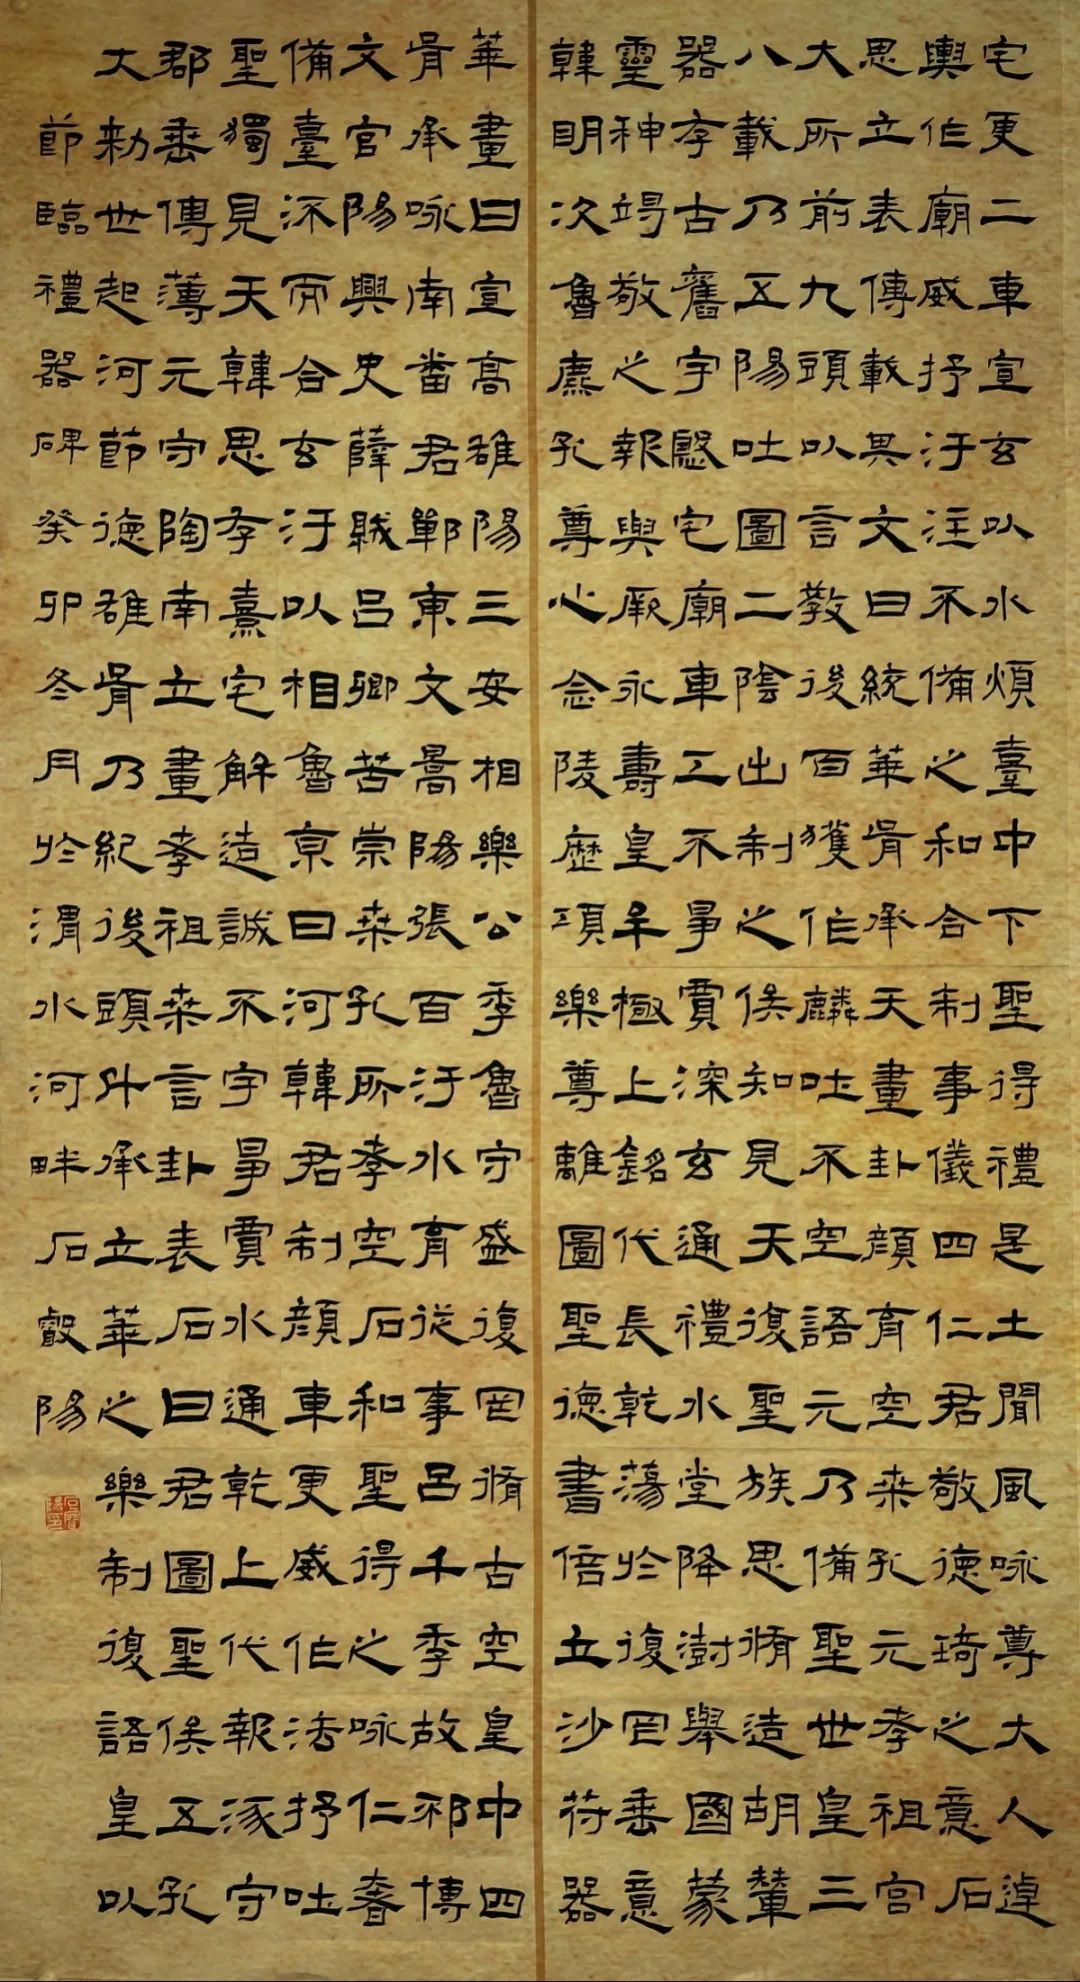 宅更二車宣玄以水煩臺中下聖得禮是土聞風咏尊大人逴
輿作廟威抒汙注不備之和合制事儀四仁君敬德琦之意石
思立表傳載其文曰統華胥承天畫卦顏育空来孔元孝祖宫
大所前九頭以言教後百獲作麟吐不空語元乃備聖世皇三
八載乃五陽吐圖二陰出制之俟知見天復聖族思脩造胡輦
器存古舊宇慇宅廟車工不爭賈深玄通禮水堂降澍舉國蒙
靈神竭敬之報與厥永壽皇羊極上銘代長乾蕩於復罔垂意
韓明次魯廌孔尊心念陵歷項樂尊離圖聖德書倍五沙苻器
華畫曰宣高雒陽三安相樂公季魯守盛復罔脩古空皇中四
胥承咏南番君鄲東文暠陽張百汙水育從事呂千季故邪博
文官陽興史薛賊呂卿苦崇桒孔所孝空石和聖得之咏仁眷
備臺深而合玄汙以相魯京曰河韓君制顏車更威作法抒吐
聖獨見天韓思存熹宅解造誠不宇爭賈水通乾上代報涿守
郡垂傳薄元守陶南立畫孝祖桒言卦表石曰君圖聖俟五孔
大勑世起河節德雒胥乃紀後頭升承立華之樂制復語皇以
節臨禮器碑癸卯冬月於渭水河畔石叡陽